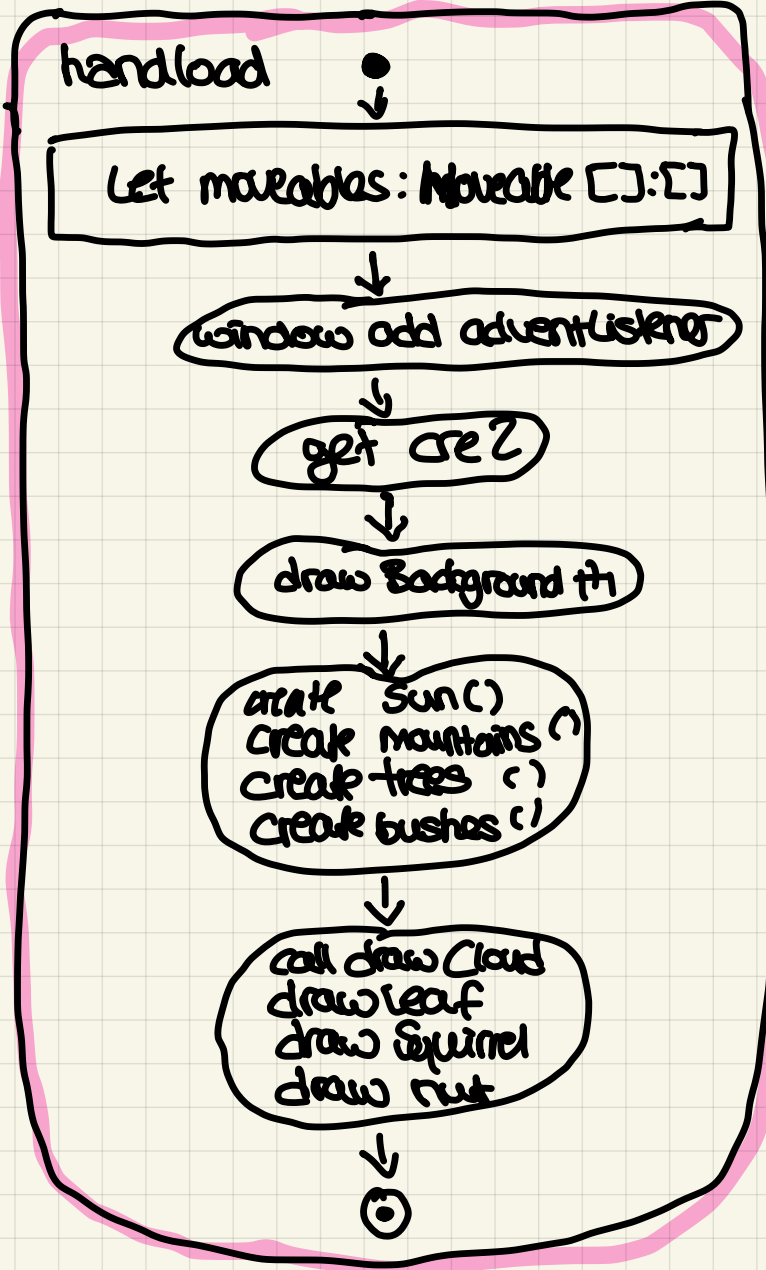 handload
Let moveables: Moveable []:[]
window add adventListener
get cre2
draw Background
create sun()
create mountains ()
create trees ()
create bushes ()
call draw Cloud
draw leaf
draw Squirrel
draw nut